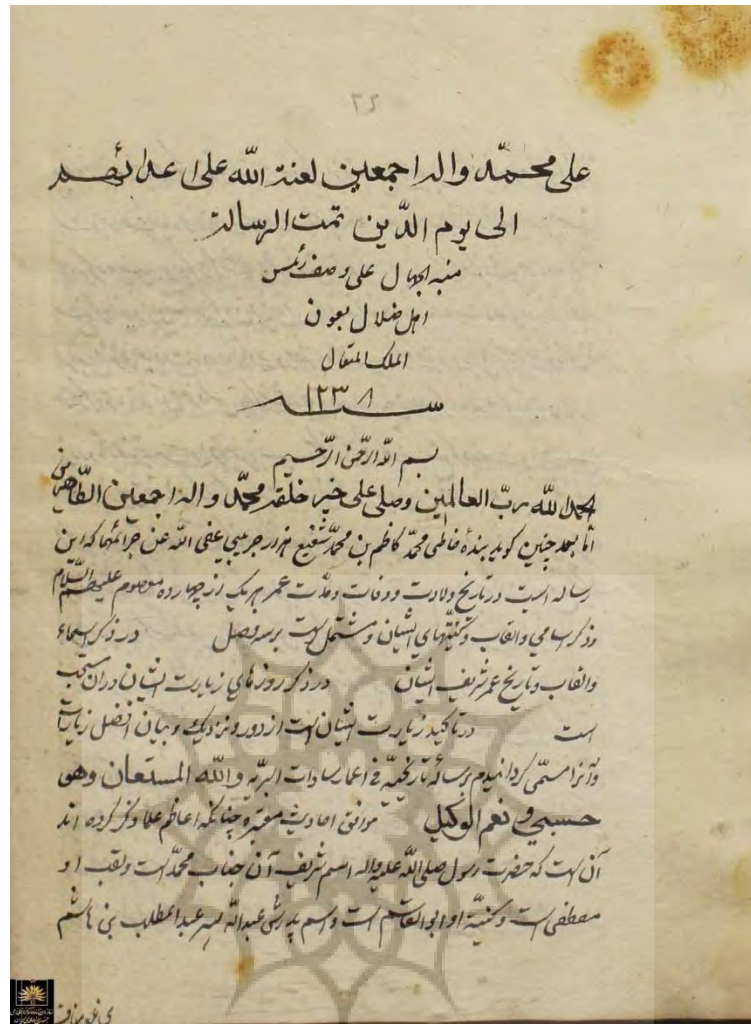 ٢٤
علی محمّد واله اجمعین لعنة الله علی اعدائهم
الی یوم الدّین تمت الرسالة
منبه الجهال علی وصف رئیس
اهل ضلال بعون
الملک المتعال
سنه ١٢٣٨
بسم الله الرّحمن الرّحیم
الحمد لله ربّ العالمین وصلی علی خیر خلقه محمّد واله اجمعین الطّاهرین
امّا بعد چنین کوید بندهٔ خاطی محمّد کاظم بن محمّد شفیع هزار جریبی عفی الله عن جرائمهما که این
رساله ایست در تاریخ ولادت ووفات ومدّت عمر هر یک از چهارده معصوم علیهم السّلام
وذکر اسامی والقاب وکنیّتهای ایشان ومشتمل است بر سه فصل در ذکر اسماء
والقاب وتاریخ عمر شریف ایشان در ذکر روزهای زیارت ایشان در ان مستحب
است در تاکید زیارت ایشان است از دور ونزدیک وبیان افضل زیارات
وآنرا مسمّی کردانیدم برسالهٔ تاریخیّه فی اعمار سادات البریّه والله المستعان وهو
حسبی ونعم الوکیل موافق احادیث معتبره چنانکه اعاظم علما ذکر کرده اند
آن است که حضرت رسول صلی الله علیه واله اسم شریف آن جناب محمّد است ولقب او
مصطفی است وکنیّة او ابو القاسم است واسم پدرش عبد الله پسر عبد المطلب بن هاشم